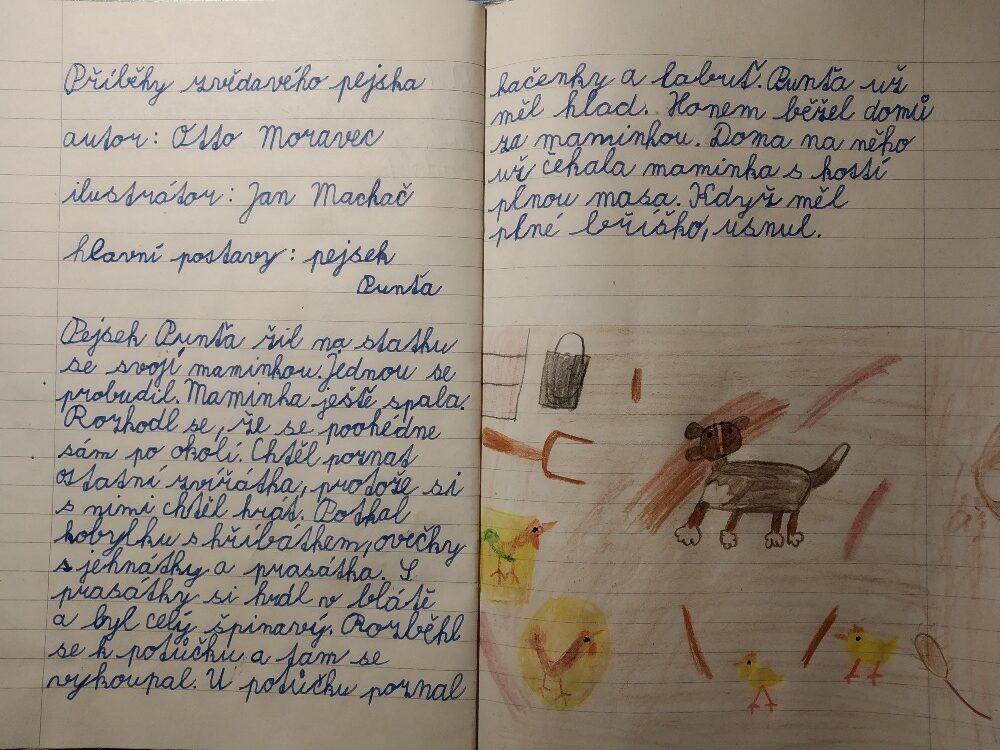 Příběhy zvídavého pejska
autor: Otto Moravec
ilustrátor: Jan Machač
hlavní postavy: pejsek
Punťa
Pejsek Punťa žil na statku
se svojí maminkou. Jednou se
probudil. Maminka ještě spala.
Rozhodl se, že se poohédne
sám po okolí. Chtěl poznat
ostatní zvířátka, protože si
s nimi chtěl hrát. Potkal
kobylku s hříbátkem, ovečky
s jehnátky a prasátka. S
prasátky si hrál v blátě
a byl celý špinavý. Rozběhl
se k potůčku a tam se
vykoupal. U potůčku poznal
kačenky a labuť. Punťa už
měl hlad. Honem běžel domů
za maminkou. Doma na něho
už čekala maminka s kostí
plnou masa. Když měl
plné bříško, usnul.